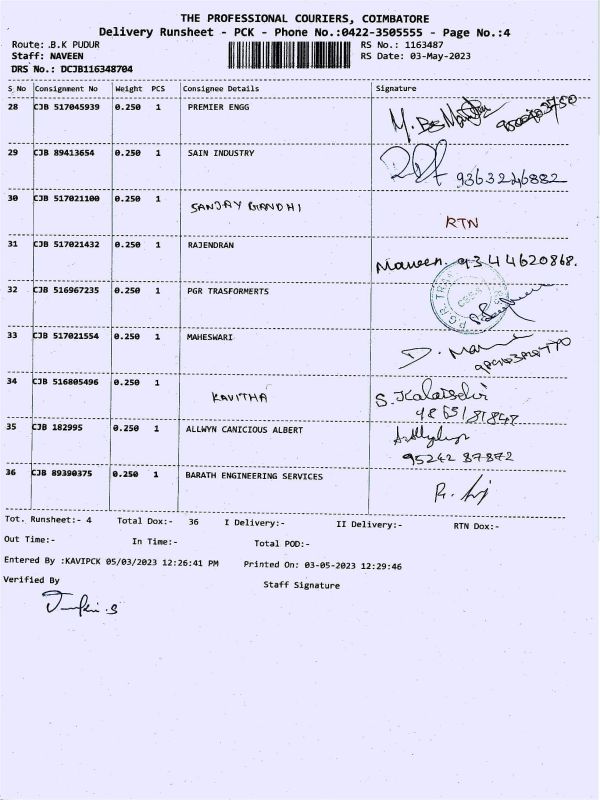 THE PROFESSIONAL COURIERS, COIMBATORE
Delivery Runsheet - PCK - Phone No.:0422-3505555 - Page No.:4
Route: .B.K PUDUR RS No.: 1163487
Staff: NAVEEN RS Date: 03-May-2023
DRS No.: DCJB116348704
S_No Consignment No Weight PCS Consignee Details Signature
28 CJB 517045939 0.250 1 PREMIER ENGG
29 CJB 89413654 0.250 1 SAIN INDUSTRY
9363246882
30 CJB 517021100 0.250 1 SANJAY GANDHI
RTN
31 CJB 517021432 0.250 1 RAJENDRAN
Naveen. 9344620868.
32 CJB 516967235 0.250 1 PGR TRASFORMERTS
P.G.R. TRAN
33 CJB 517021554 0.250 1 MAHESWARI
34 CJB 516805496 0.250 1 KAVITHA
S. Kalaiselvi
35 CJB 182995 0.250 1 ALLWYN CANICIOUS ALBERT
95242 87872
36 CJB 89390375 0.250 1 BARATH ENGINEERING SERVICES
Tot. Runsheet:- 4 Total Dox:- 36 I Delivery:- II Delivery:- RTN Dox:-
Out Time:- In Time:- Total POD:-
Entered By :KAVIPCK 05/03/2023 12:26:41 PM Printed On: 03-05-2023 12:29:46
Verified By Staff Signature